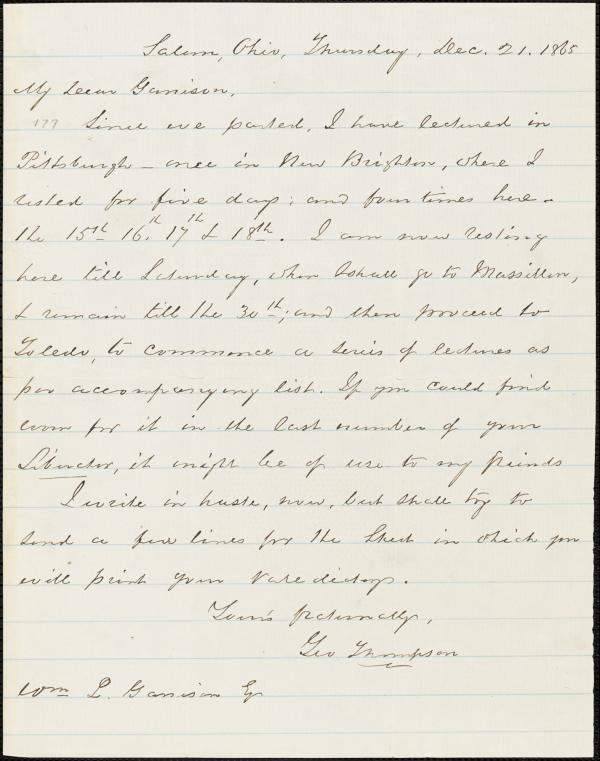 Salem, Ohio, Thursday, Dec. 21. 1865
My dear Garrison,
177 Since we parted, I have lectured in
Pittsburgh — once in New Brighton, where I
rested for five days; and four times here —
the 15th 16th. 17th & 18th. I am now resting
here till Saturday, when I shall go to Massillon,
& remain till the 30th; and then proceed to
Toledo, to commence a series of lectures as
per accompanying list. If you could find
room for it in the last number of your
Liberator, it might be of use to my friends
I write in haste, now, but shall try to
send a few lines for the Sheet in which you
will print your Valedictory.
Yours fraternally,
Geo Thompson
Wm L. Garrison Esq